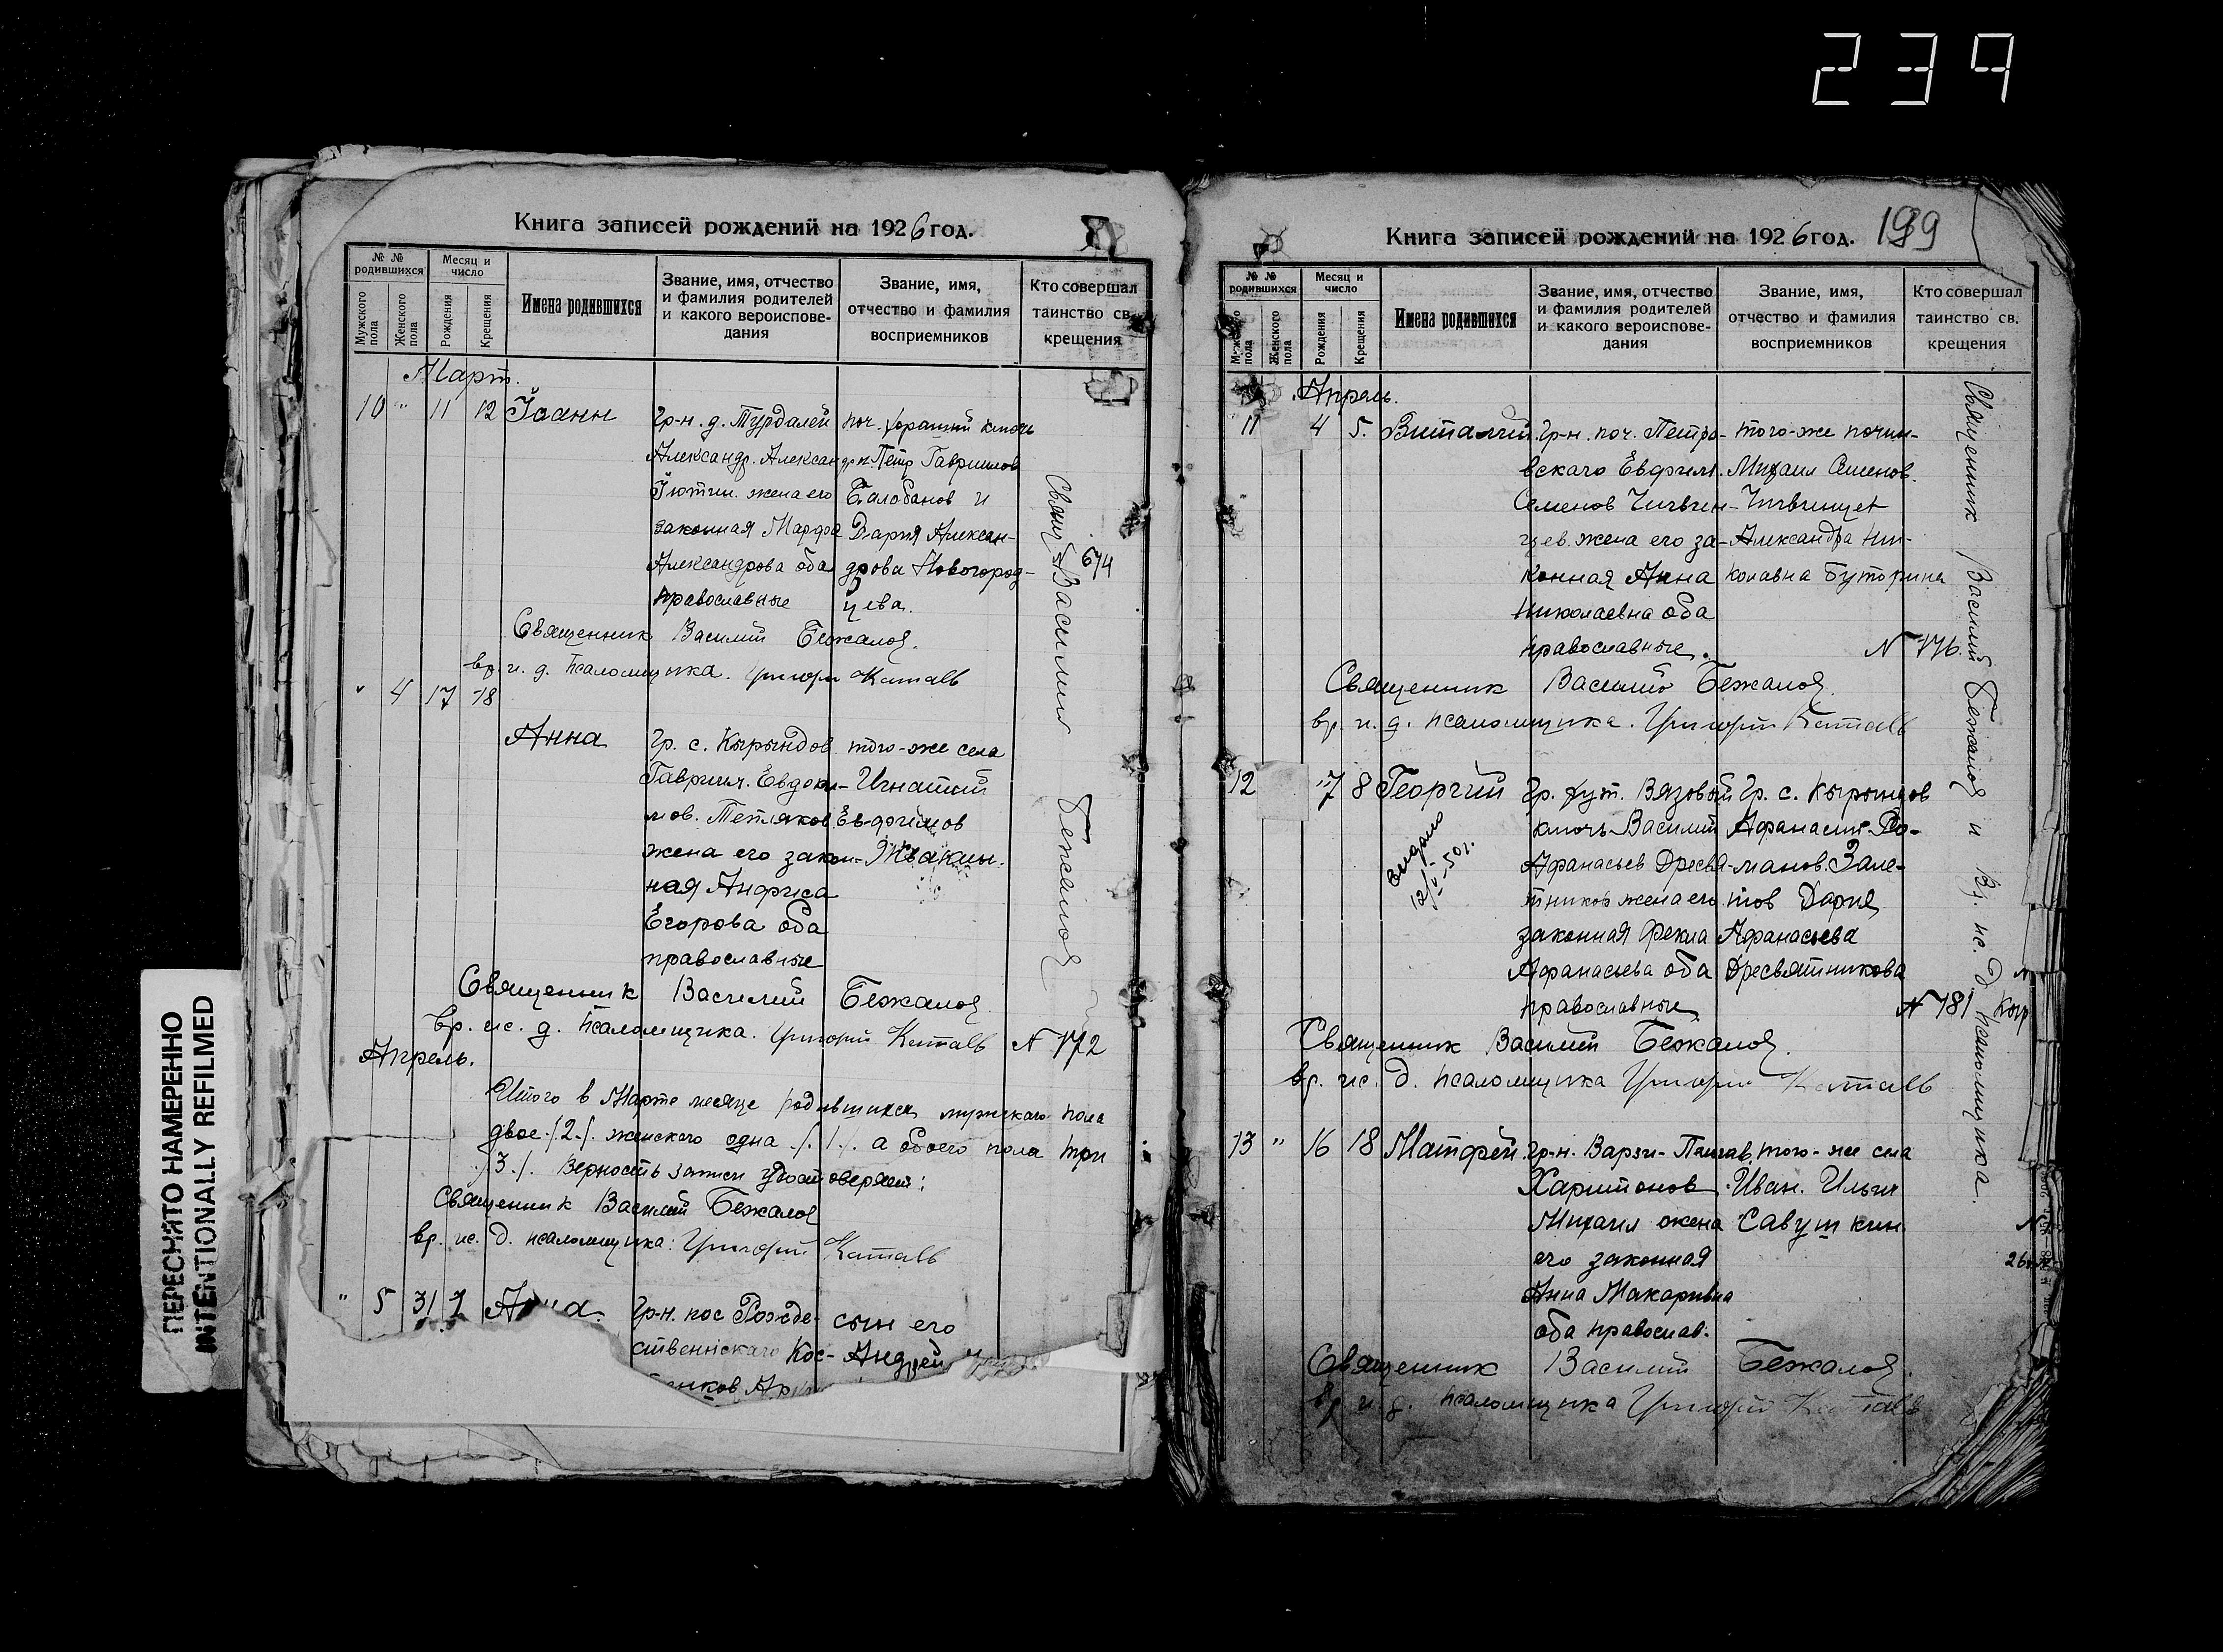 239
ПЕРЕСНЯТО НАМЕРЕННО
INTENTIONALLY REFILMED
Книга записей рождений на 1926 год.
№ № родившихся
Мужского пола
Женского пола
Месяц и число
Рождения
Крещения
Имена родившихся
Звание, имя, отчество и фамилия родителей и какого вероисповедания
Звание, имя, отчество и фамилия восприемников
Кто совершал таинство св. крещения
Март.
10 " 11 12 Іоанн
Гр-н. д. Турдалей
Александр. Александр.
жена его
законная Марфа
Александрова оба
православные
поч. ключь
Петр Гаврилов
Балобанов и
Дария Алексан-
дрова Новогород-
цева.
674
Священник Василий Бежалов.
вр. и. д. псаломщика. Григорий
" 4 17 18
Анна
Гр. с. Кырындов
Гаврил. Евдоки-
мов. Петляков
жена его закон-
ная Анфиса
Егорова оба
православные
того-же села
Игнатий
Евфимов
Жвакин.
Священник Василий Бежалов
вр. ис. д. псаломщика. Григорий
N 172
Священ. Василий Бежалов
Апрель.
Итого в Марте месяце родившихся мужскаго пола
двое /2/. женского одна /1/. а обоего пола три
/3./. Верность записи удостоверяем:
Священник Василий Бежалов
вр. ис. д. псаломщика: Григорий
" 5 31 Анна.
Гр-н. пос Рожде-
ственнскаго Кос-
сын его
Андрей
Книга записей рождений на 1926 год.
199
№ № родившихся
Мужского пола
Женского пола
Месяц и число
Рождения
Крещения
Имена родившихся
Звание, имя, отчество и фамилия родителей и какого вероисповедания
Звание, имя, отчество и фамилия восприемников
Кто совершал таинство св. крещения
Апрель.
11 4 5. Виталий
Гр-н. поч. Петро-
вскаго Евфим.
Семенов
жена его за-
конная Анна
Николаевна оба
православные.
того-же почин-
Михаил Семенов.
Александра Ни-
колавна Буторина
N 176.
Священник Василий Бежалов.
вр. и. д. псаломщика. Григорий
12 7 8 Георгий
Выдано
12/V-50г.
Гр. хут. Вязовый
ключь Василий
Афанасьев Дресвя-
тников жена его
законная Фекла
Афанасьева оба
православные
Гр. с. Кырындов
Афанасий Ро-
манов. Зале-
тов Дария
Афанасьева
Дресвятникова
N 181
Священник Василий Бежалов.
вр. ис. д. псаломщика Григорий
13 " 16 18 Матфей
Гр-н. Варзи-Пельгав
Харитонов
Михаил жена
его законная
Анна Макаривна
оба православ.
того-же села
Иван. Ильич
Савуткин
Священник Василий Бежалов.
вр и д. псаломщика Григорий
Священник Василий Бежалов и Вр. ис. Д псаломщика.